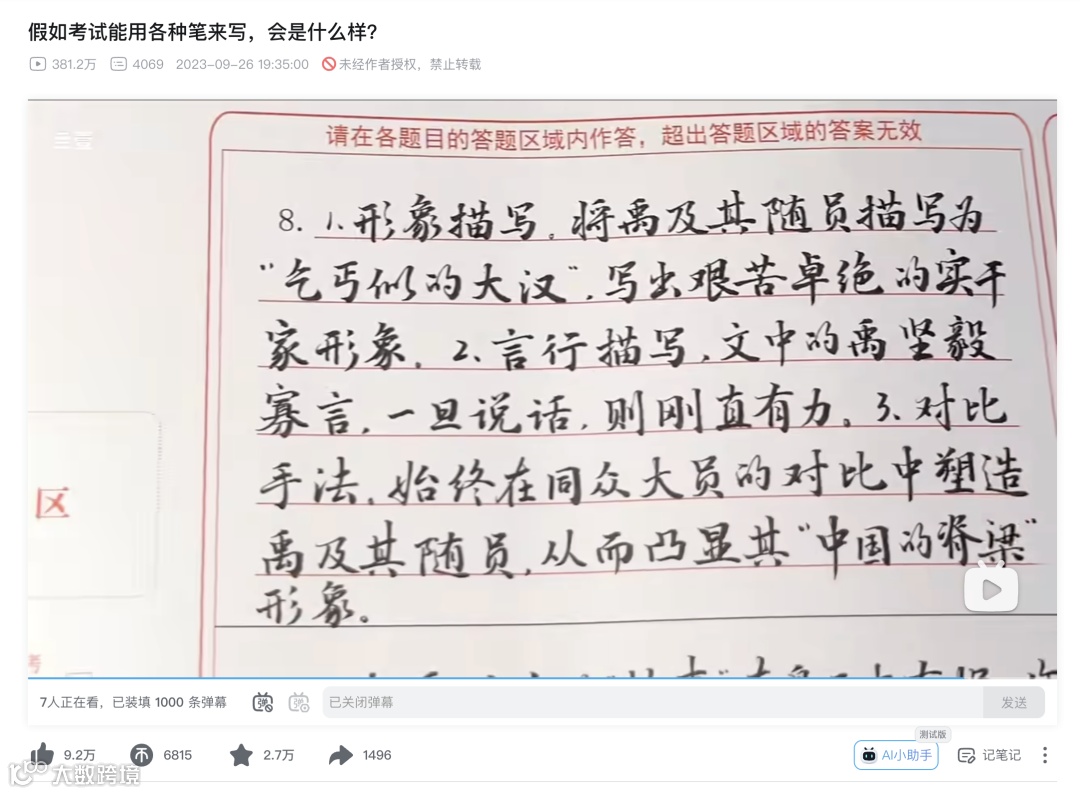 假如考试能用各种笔来写，会是什么样？
381.2万 4069 2023-09-26 19:35:00 未经作者授权，禁止转载
请在各题目的答题区域内作答，超出答题区域的答案无效
8. 1.形象描写。将禹及其随员描写为
“乞丐似的大汉”，写出艰苦卓绝的实干
家形象。2.言行描写，文中的禹坚毅
寡言，一旦说话，则刚直有力。3.对比
手法，始终在同众大员的对比中塑造
禹及其随员，从而凸显其“中国的脊梁”
形象。
区
考
7人正在看，已装填 1000 条弹幕 弹 弹 已关闭弹幕 发送
测试版
9.2万 6815 2.7万 1496 AI小助手 记笔记
大数跨境